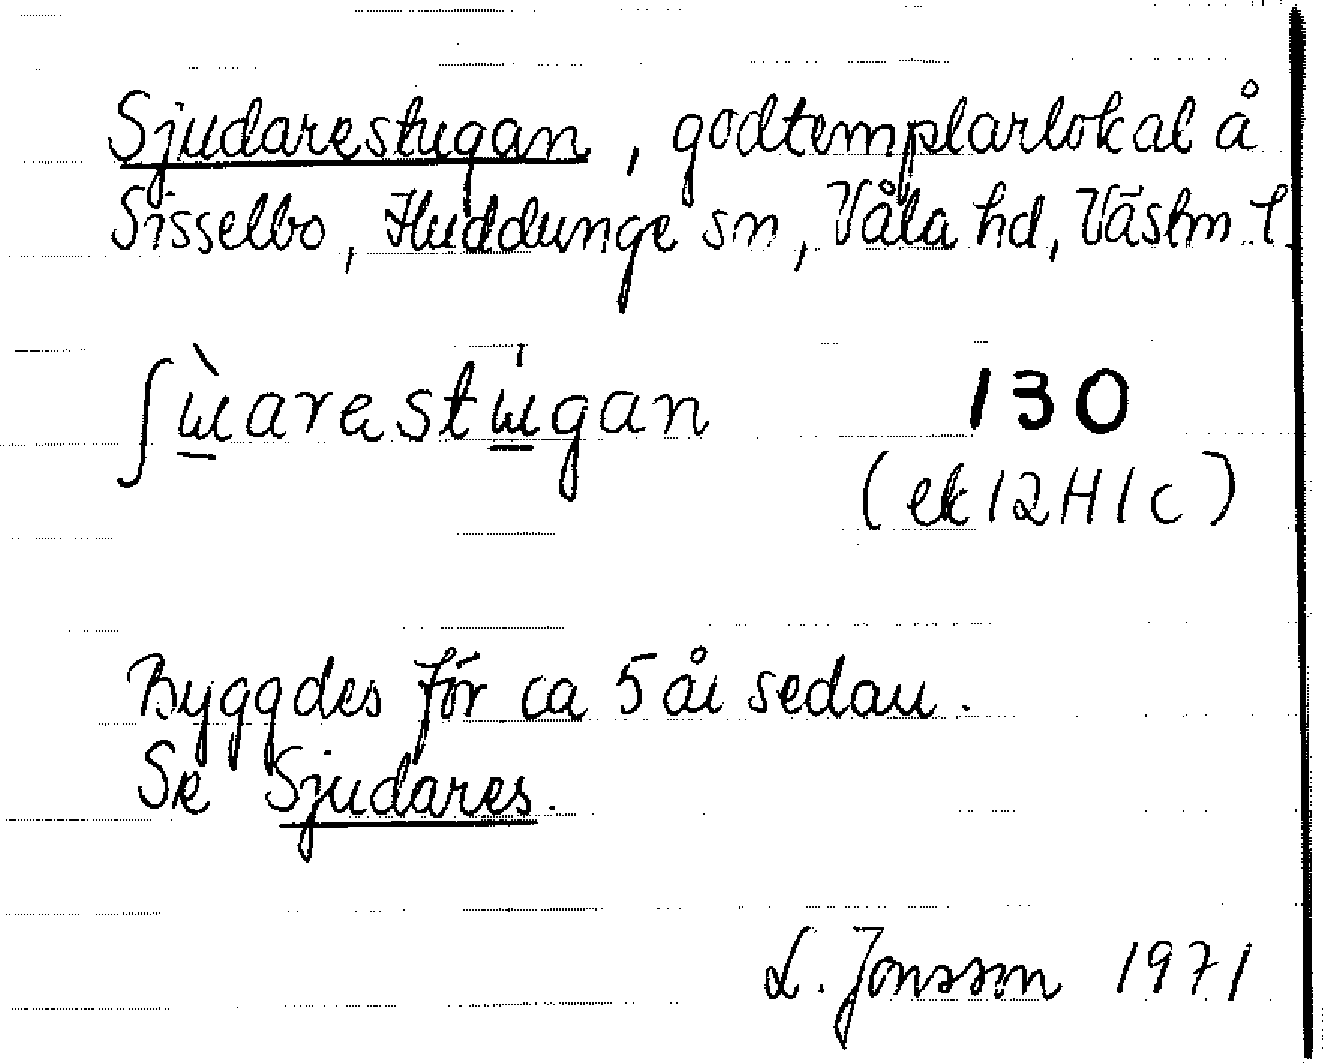 Sjudarestugan, godtemplarlokal å
Sisselbo, Huddunge sn, Våla hd, Västm l.
ʃɯ̀arestɯ́gan 130
(ek 12H1c)
Byggdes för ca 5 år sedan.
Se Sjudares.
L. Jonsson 1971